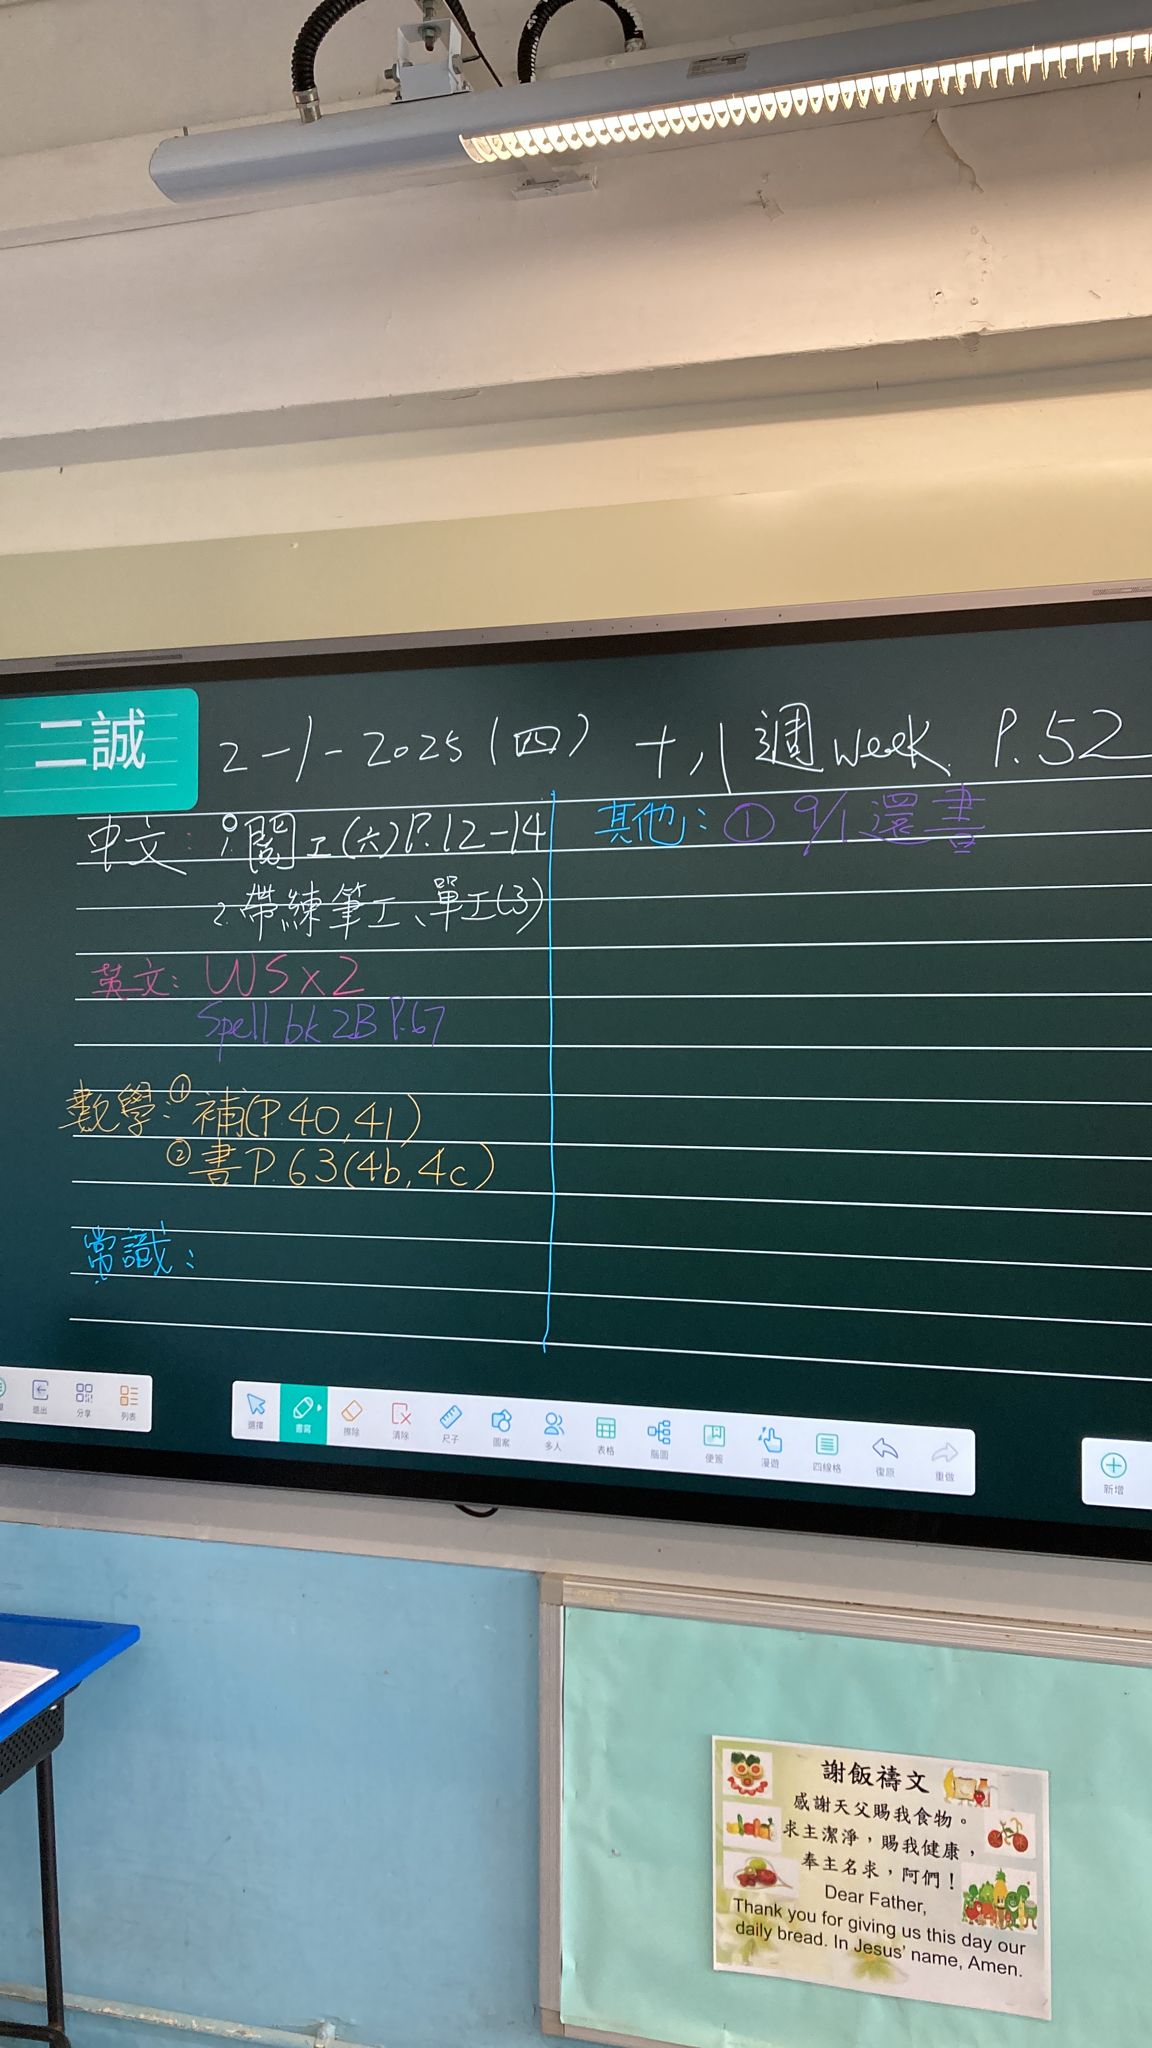 二誠
2-1-2025(四) 十八週week P.52
中文: 1.閱工(六)P.12-14
2.帶練筆工、單工(3)
英文: WS x 2
Spell bk 2B P.67
數學: ① 補(P.40,41)
② 書P.63(4b,4c)
常識:
其他: ① 9/1 還書
退出 分享 列表
選擇 書寫 擦除 清除 尺子 圖案 多人 表格 腦圖 便簽 漫遊 四線格 復原 重做
新增
謝飯禱文
感謝天父賜我食物。
求主潔淨，賜我健康，
奉主名求，阿們！
Dear Father,
Thank you for giving us this day our
daily bread. In Jesus' name, Amen.